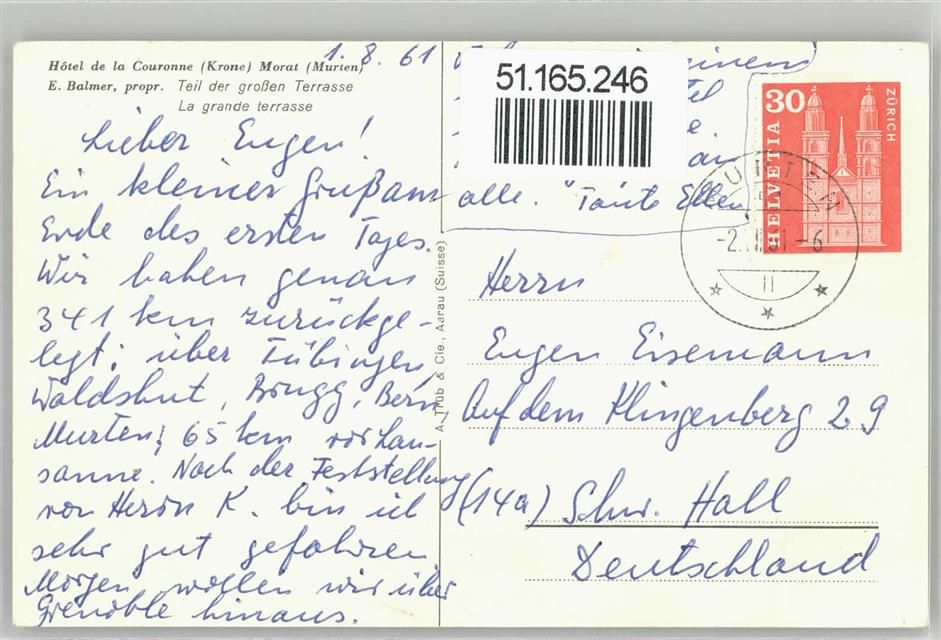 Hôtel de la Couronne (Krone) Morat (Murten)
E. Balmer, propr. Teil der großen Terrasse
La grande terrasse
1. 8. 61
Lieber Eugen!
Ein kleiner Gruß am
Ende des ersten Tages.
Wir haben genau
341 km zurückge-
legt; über Tübingen,
Waldshut, Brugg, Bern,
Murten; 65 km vor Lau-
sanne. Nach der Feststellung
von Herrn K. bin ich
sehr gut gefahren
Morgen wollen wir über
Grenoble hinaus.
einem
tel
e.
an
alle. Tante Ellen
51.165.246
A. Trüb & Cie., Aarau (Suisse)
30
HELVETIA
ZÜRICH
MURTEN
-6
Herrn
Eugen Eisemann
Auf dem Klingenberg 29
(14a) Schw. Hall
Deutschland